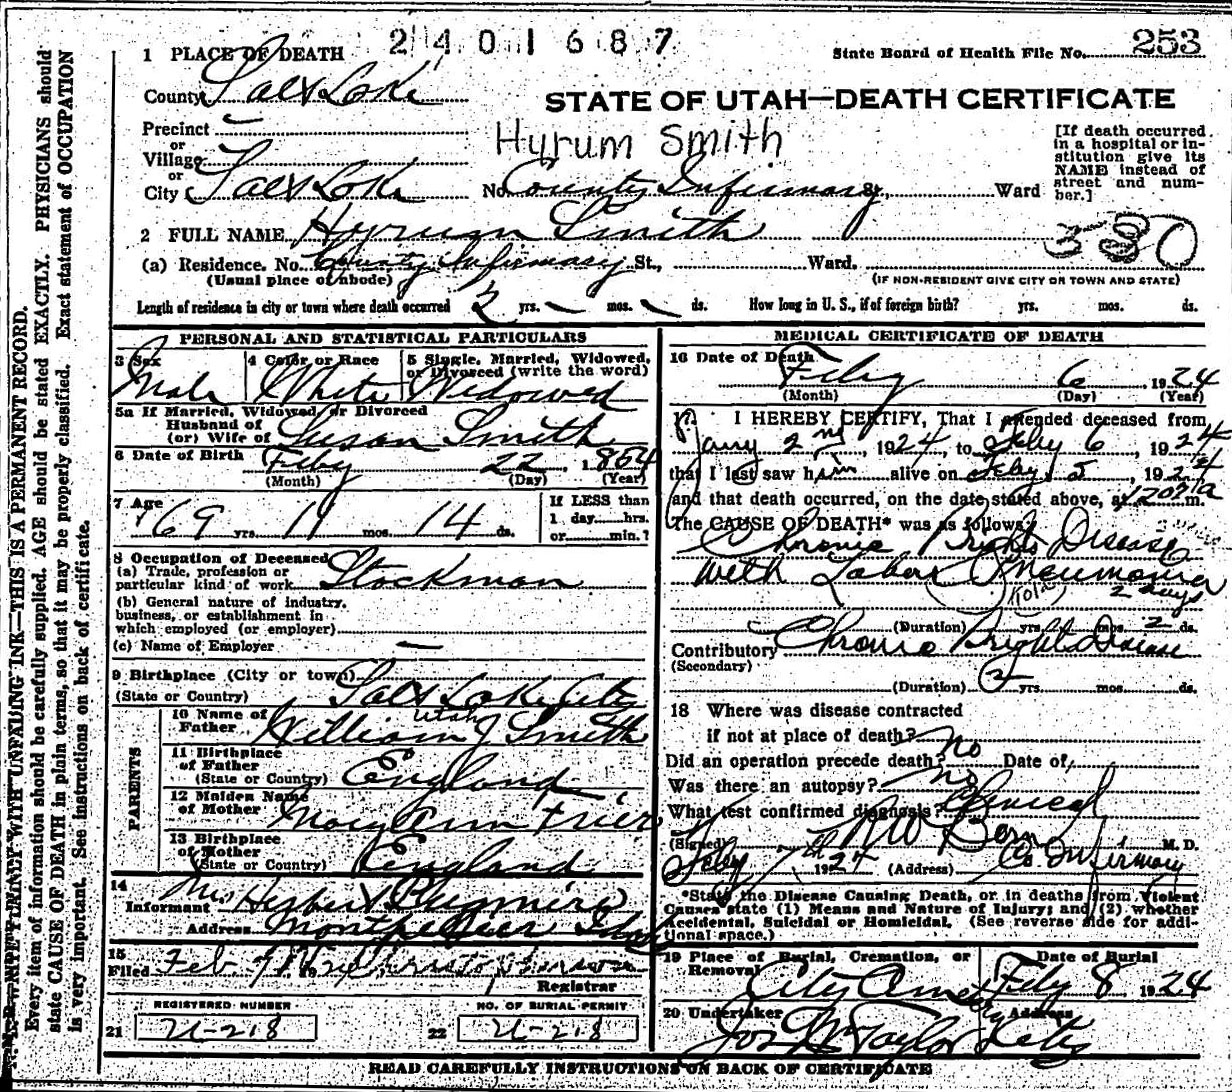 2401687
1 PLACE OF DEATH
State Board of Health File No. 253
County Salt Lake
STATE OF UTAH—DEATH CERTIFICATE
Precinct
or
Village
or
City Salt Lake No. County Infirmary St., Ward
Hyrum Smith
[If death occurred
in a hospital or in-
stitution give its
NAME instead of
street and num-
ber.]
2 FULL NAME Hyrum Smith
330
(a) Residence. No. County Infirmary St., Ward.
(Usual place of abode)
(IF NON-RESIDENT GIVE CITY OR TOWN AND STATE)
Length of residence in city or town where death occurred yrs. — mos. — ds. How long in U. S., if of foreign birth? yrs. mos. ds.
PERSONAL AND STATISTICAL PARTICULARS
3 Sex
Male
4 Color or Race
White
5 Single, Married, Widowed,
or Divorced (write the word)
Widowed
5a If Married, Widowed or Divorced
Husband of
(or) Wife of Susan Smith
6 Date of Birth Feby 22, 1854
(Month) (Day) (Year)
7 Age
69 yrs. 11 mos. 14 ds.
If LESS than
1 day hrs.
or min.?
8 Occupation of Deceased
(a) Trade, profession or
particular kind of work Stockman
(b) General nature of industry,
business, or establishment in
which employed (or employer)
(c) Name of Employer —
9 Birthplace (City or town)
(State or Country) Salt Lake City
Utah
PARENTS
10 Name of
Father William J Smith
11 Birthplace
of Father
(State or Country) England
12 Maiden Name
of Mother Mary Ann Frier
13 Birthplace
of Mother
(State or Country) England
14
Informant Mrs Herbert
Address Montpelier Ida
15
Filed Feb
Registrar
REGISTERED NUMBER
21 U-218
NO. OF BURIAL PERMIT
22 U-218
MEDICAL CERTIFICATE OF DEATH
16 Date of Death
Feby 6, 1924
(Month) (Day) (Year)
17. I HEREBY CERTIFY, That I attended deceased from
Jany 2nd, 1924, to Feby 6, 1924
that I last saw him alive on Feby 5, 1924
and that death occurred, on the date stated above, at m.
The CAUSE OF DEATH* was as follows:
Chronic Brights Disease
with Lobar Pneumonia
2 days
(Duration) yrs. mos. 2 ds.
Contributory Chronic Brights Disease
(Secondary)
(Duration) 2 yrs. mos. ds.
18 Where was disease contracted
if not at place of death?
Did an operation precede death? No Date of
Was there an autopsy? No
What test confirmed diagnosis? Clinical
(Signed) M. D.
Feby 7th 1924 (Address) Co. Infirmary
*State the Disease Causing Death, or in deaths from Violent
Causes state (1) Means and Nature of Injury; and (2) whether
Accidental, Suicidal or Homicidal. (See reverse side for addi-
tional space.)
19 Place of Burial, Cremation, or
Removal
City Cemetery
Date of Burial
Feby 8 1924
20 Undertaker
Jos Wm Taylor
Address
City
READ CAREFULLY INSTRUCTIONS ON BACK OF CERTIFICATE
N. B. WRITE PLAINLY WITH UNFADING INK—THIS IS A PERMANENT RECORD.
Every item of information should be carefully supplied. AGE should be stated EXACTLY. PHYSICIANS should
state CAUSE OF DEATH in plain terms, so that it may be properly classified. Exact statement of OCCUPATION
is very important. See instructions on back of certificate.